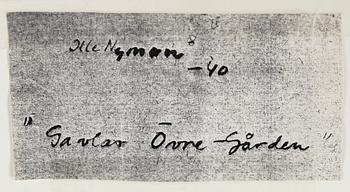 Olle Nyman
-40
"Gavlar Övre Gården"